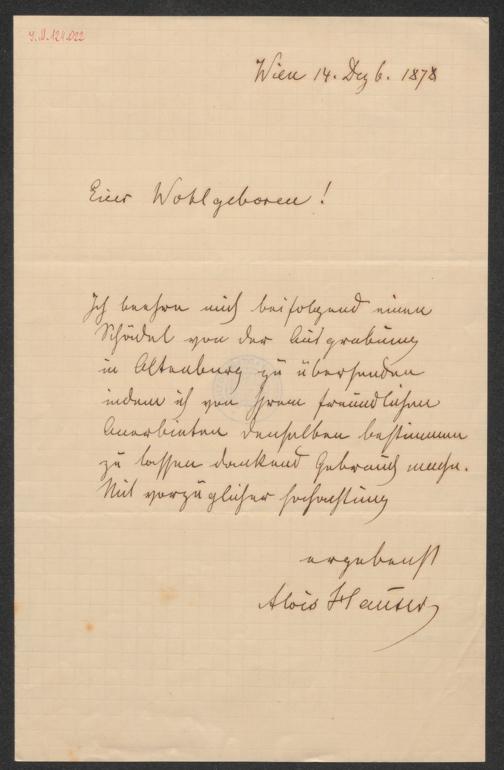 I.N.121.022
Wien 14. Dez b. 1878
Euer Wohlgeboren !
Ich beehre mich beifolgend einen
Schädel von der Ausgrabung
in Altenburg zu übersenden
indem ich von Ihrem freundlichen
Anerbieten denselben bestimmen
zu lassen dankend Gebrauch mache.
Mit vorzüglicher Hochachtung
ergebenst
Alois Hauser